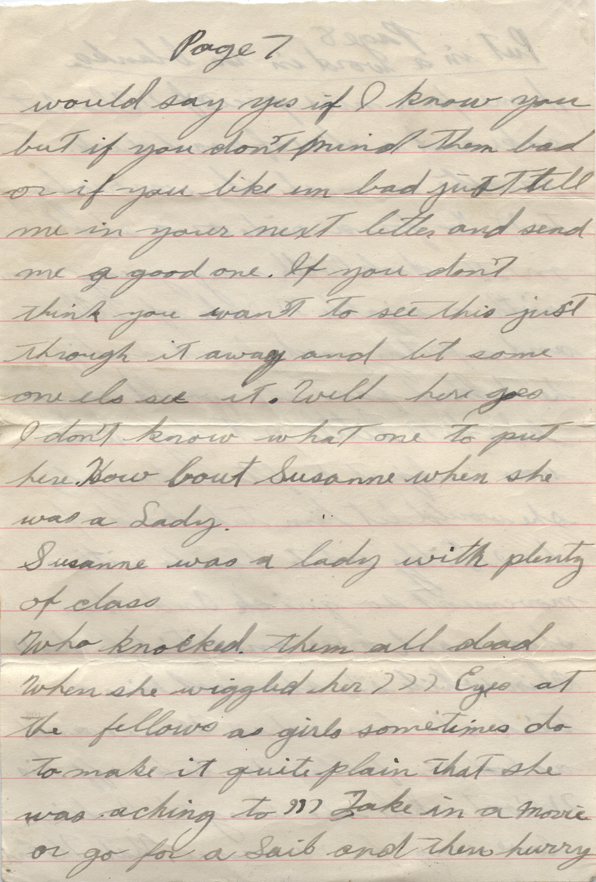 Page 7
would say yes if I know you
but if you don't mind them bad
or if you like um bad just tell
me in your next letter and send
me a good one. If you don't
think you want to see this just
through it away and let some
one els see it. Well here goes
I don't know what one to put
here. How bout Susanne when she
was a Lady.
Susanne was a lady with plenty
of class
Who knocked them all dead
When she wiggled her ))) Eyes at
the fellows as girls sometimes do
to make it quite plain that she
was aching to ))) Take in a movie
or go for a Sail and then hurry